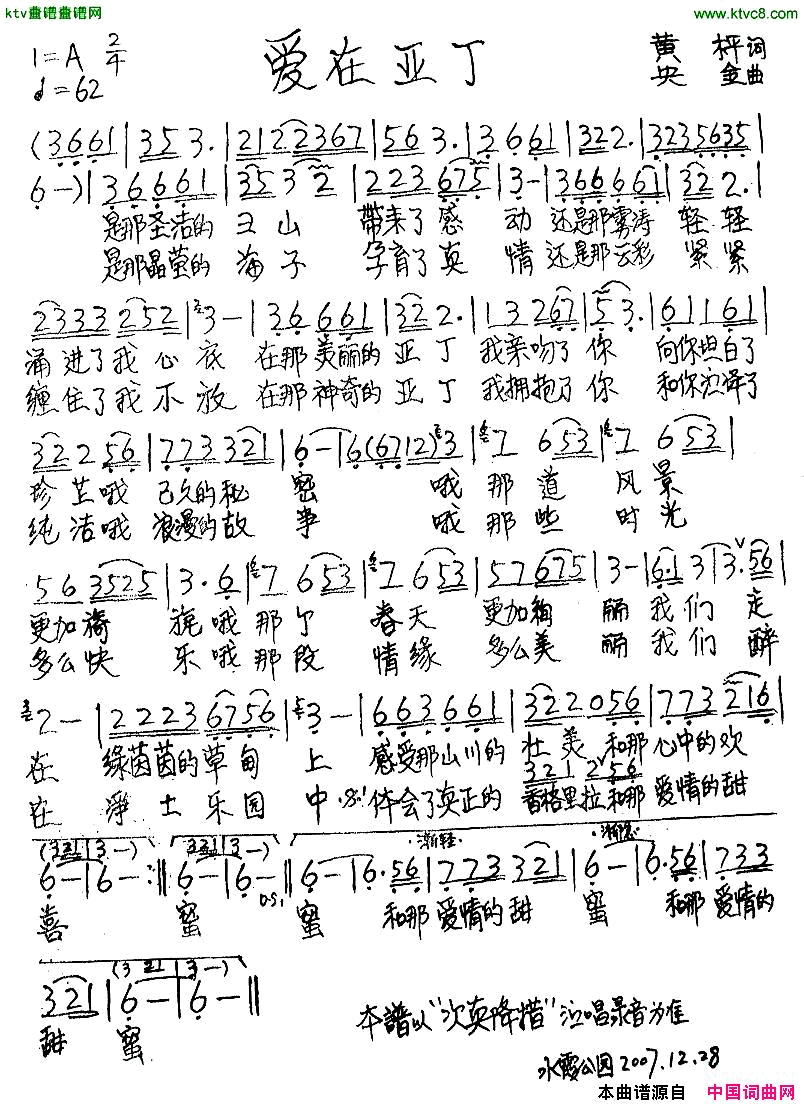 ktv歌谱歌谱网
www.ktvc8.com
1=A 2/4
♩=62
爱在亚丁
黄枰 词
央金 曲
(3661|353.|2122 2367|563.|3661|322.|3235 6535|
6-)|36661|353 22|223 675|3-|366661|322.|
是那圣洁的 王山 带来了感动 还是那雾涛 轻轻
是那晶莹的 海子 孕育了真情 还是那云彩 紧紧
2333 252|3-|36661|322.|13267|53.|61161|
涌进了我心底 在那美丽的亚丁 我亲吻了你 向你坦白了
缠住了我不放 在那神奇的亚丁 我拥抱了你 和你演译了
32256|773321|6-|6(6712)3|7653|7653|
珍芷哦 已久的秘密 哦那道风景
纯洁哦 浪漫的故事 哦那些时光
563525|3.6|7653|7653|57675|3-|6.13|3.56|
更加旖旎哦那个春天 更加绚丽我们走
多么快乐哦那段情缘 多么美丽我们醉
2-|22236756|3-|663661|322056|773216|
在 绿茵茵的草甸上 感受那山川的 壮美和那心中的欢
321 256
在 净土乐园中 体会了真正的 香格里拉和那 爱情的甜
(321|3-) (321|3-) ·渐轻· ·渐轻
6-|6-:‖6-|6-‖6-|6.56|773321|6-|6.56|7733
D.S.
喜 蜜 蜜 和那爱情的甜 蜜 和那爱情的
(321|3-)
321|6-|6-‖
甜 蜜
本谱以"次真降措"演唱录音为准
水霞公园2007.12.28
本曲谱源自 中国词曲网